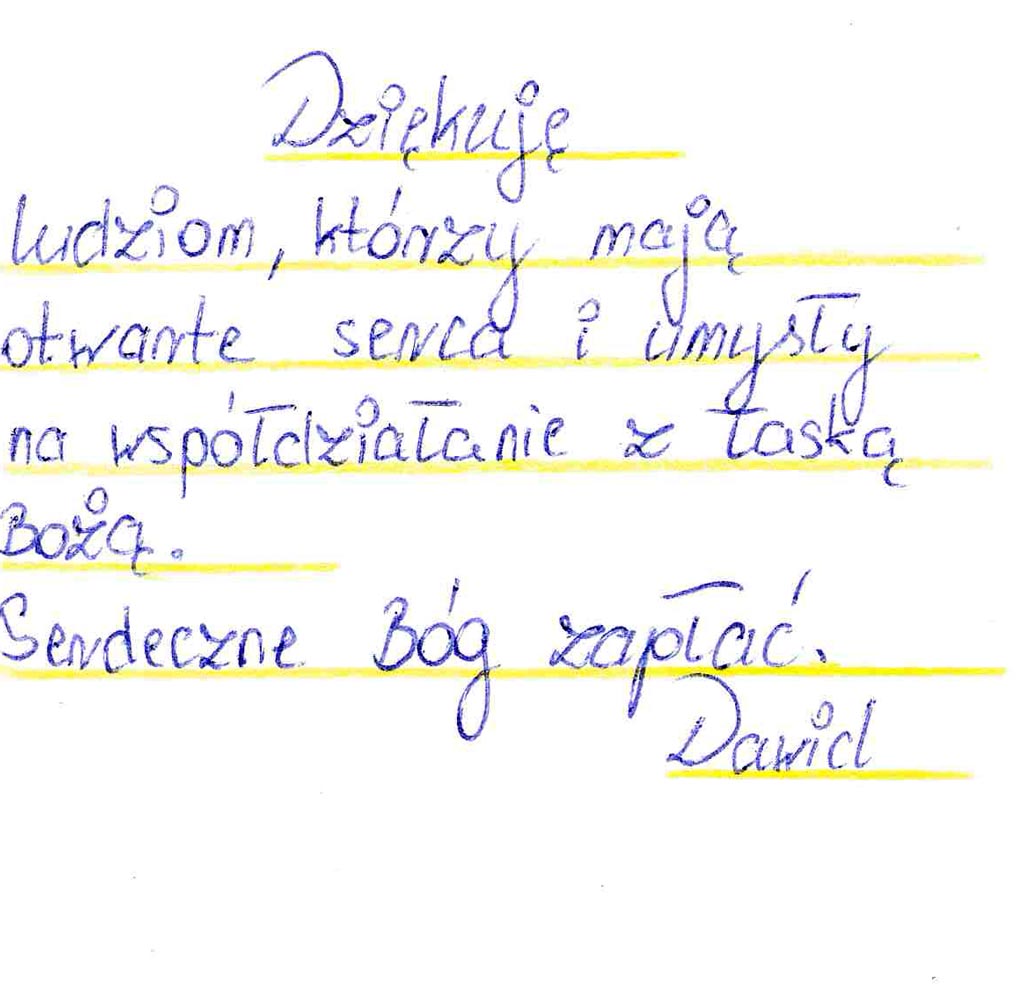 Dziękuję
ludziom, którzy mają
otwarte serca i umysły
na współdziałanie z łaską
Bożą.
Serdeczne Bóg zapłać.
Dawid